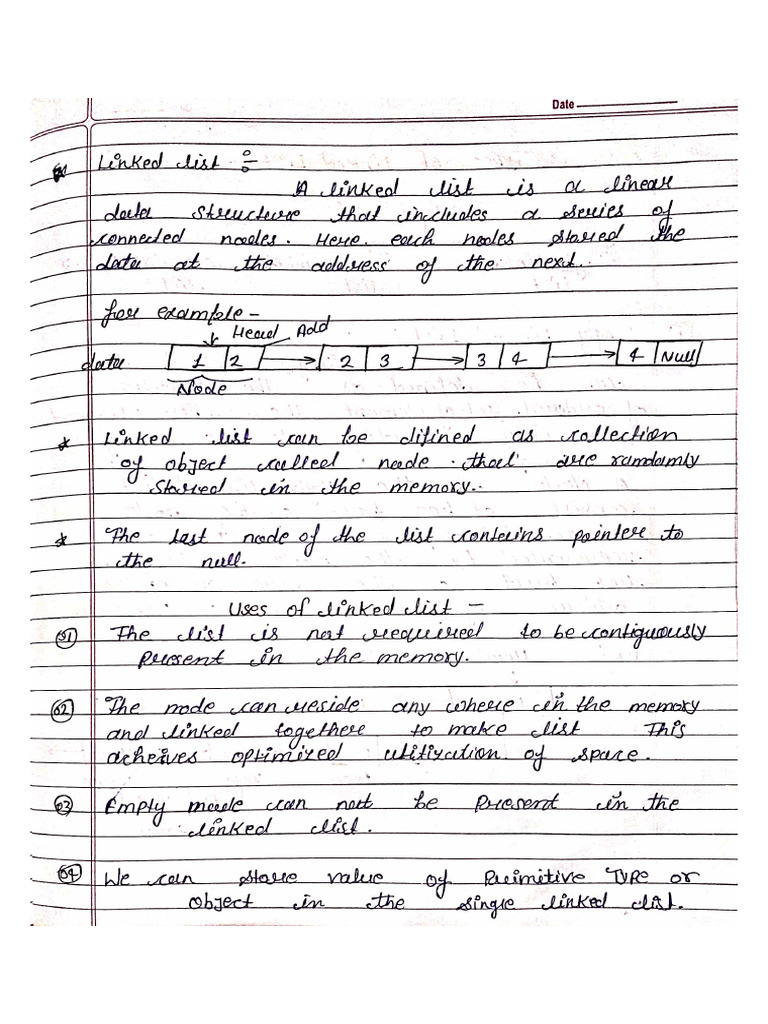 Date
Linked list :-
A linked list is a linear
data structure that includes a series of
connected nodes. Here, each nodes stored the
data at the address of the next.
for example -
Head Add
data 1 2 2 3 3 4 4 Null
Node
* Linked list can be difined as collection
of object called node that are randamly
stored in the memory.
* The last node of the list contains pointer to
the null.
Uses of linked list -
01 The list is not required to be contiguously
Present in the memory.
02 The node can reside any where in the memory
and linked togethere to make list This
acheives optimized utilization of space.
03 Empty node can not be Present in the
linked list.
04 We can store value of Primitive TYPE or
object in the single linked list.